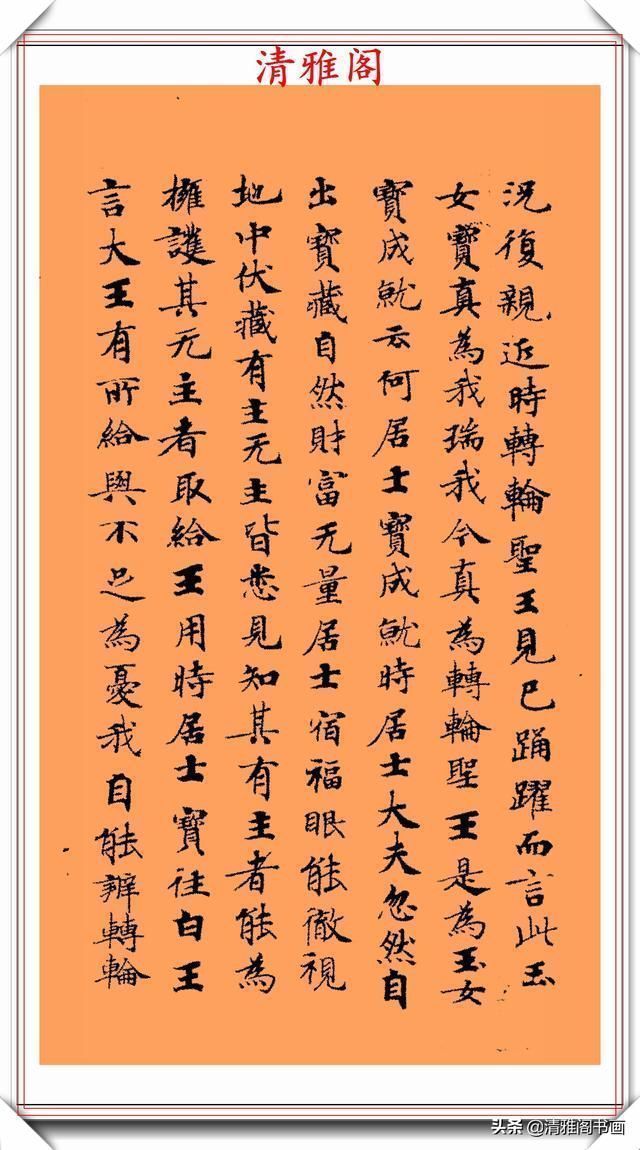 清雅阁
况復親近時轉輪聖王見已踊躍而言此玉
女寶真為我瑞我今真為轉輪聖王是為玉女
寶成就云何居士寶成就時居士大夫忽然自
出寶藏自然財富无量居士宿福眼能徹視
地中伏藏有主无主皆悉見知其有主者能為
擁護其无主者取給王用時居士寶往白王
言大王有所給與不足為憂我自能辦轉輪
头条@清雅阁书画